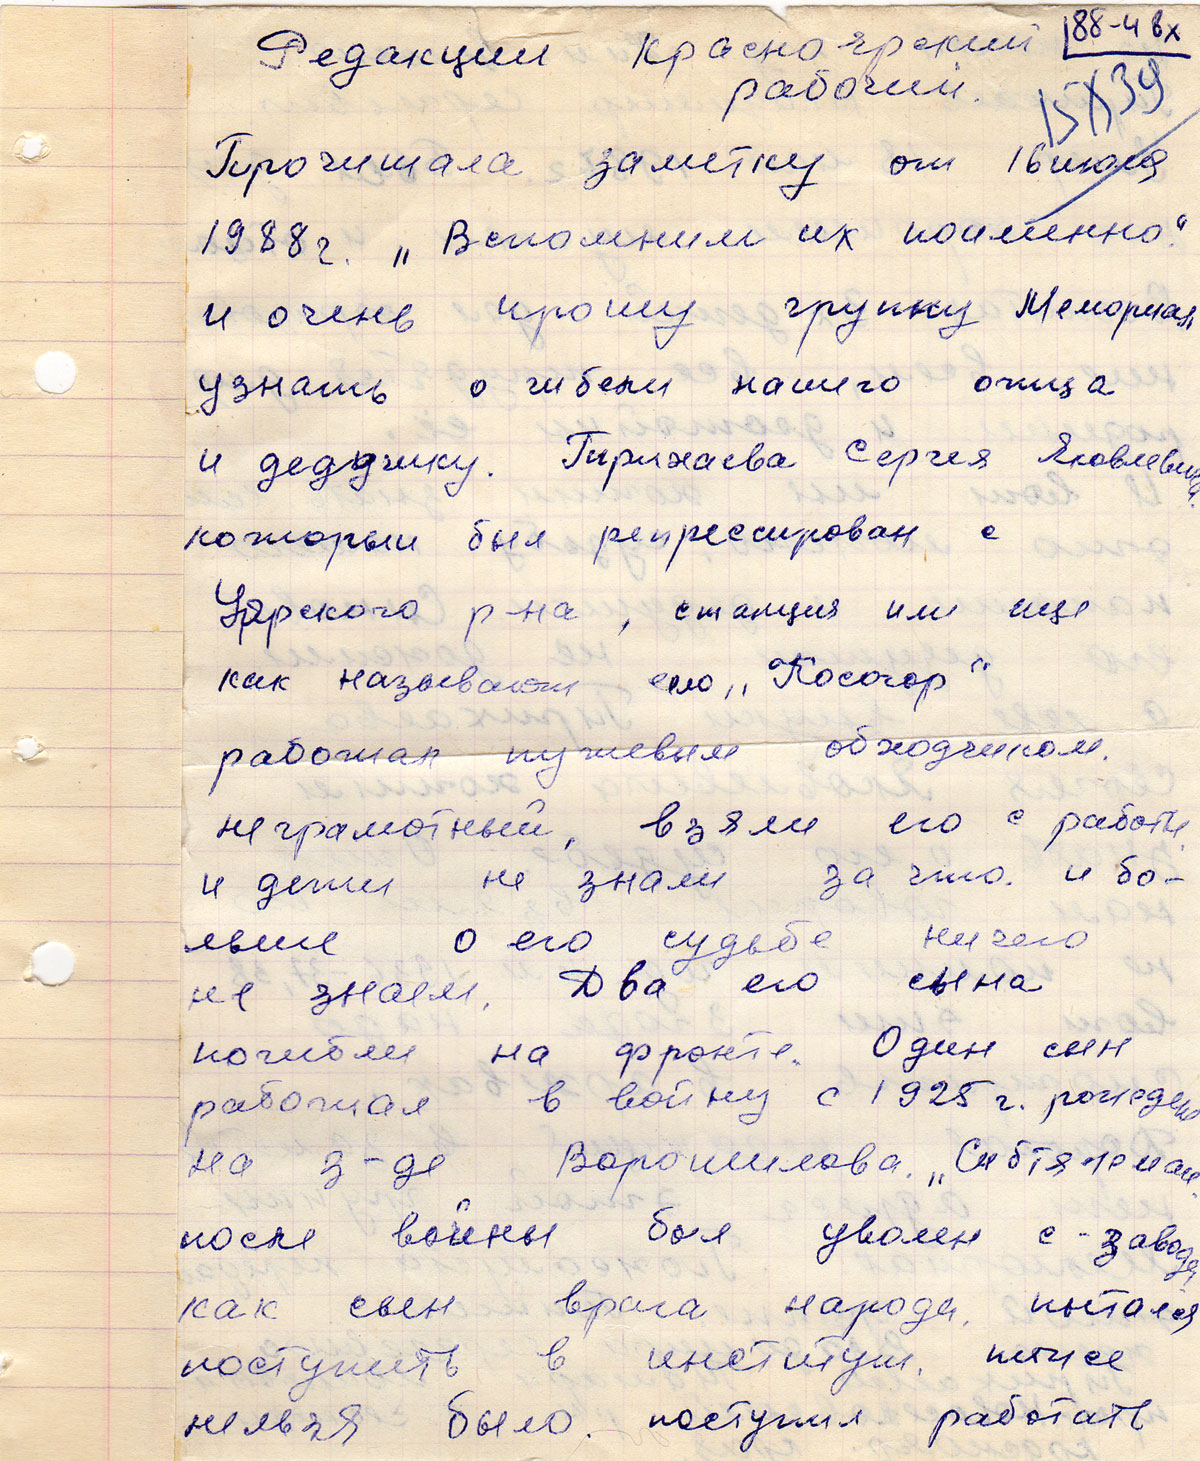 88-4 вх
Редакции Красноярский
рабочий.
15/X 39
Прочитала заметку от 16 июля
1988г. „Вспомним их поименно."
и очень прошу группу Мемориал
узнать о гибели нашего отца
и дедушку. Гирихаева Сергея Яковлевича.
который был репрессирован с
Уярского р-на, станция или еще
как называют село „Косогор"
работал путевым обходчиком.
неграмотный, взяли его с работы
и дети не знали за что. и бо-
льше о его судьбе ничего
не знаем. Два его сына
погибли на фронте. Один сын
работал в войну с 1925 г. рожден
на з-де Ворошилова. „Сибтяжмаш.
после войны был уволен с-завода,
как сын врага народа, пытался
поступить в институт, тоже
нельзя было. поступил работать